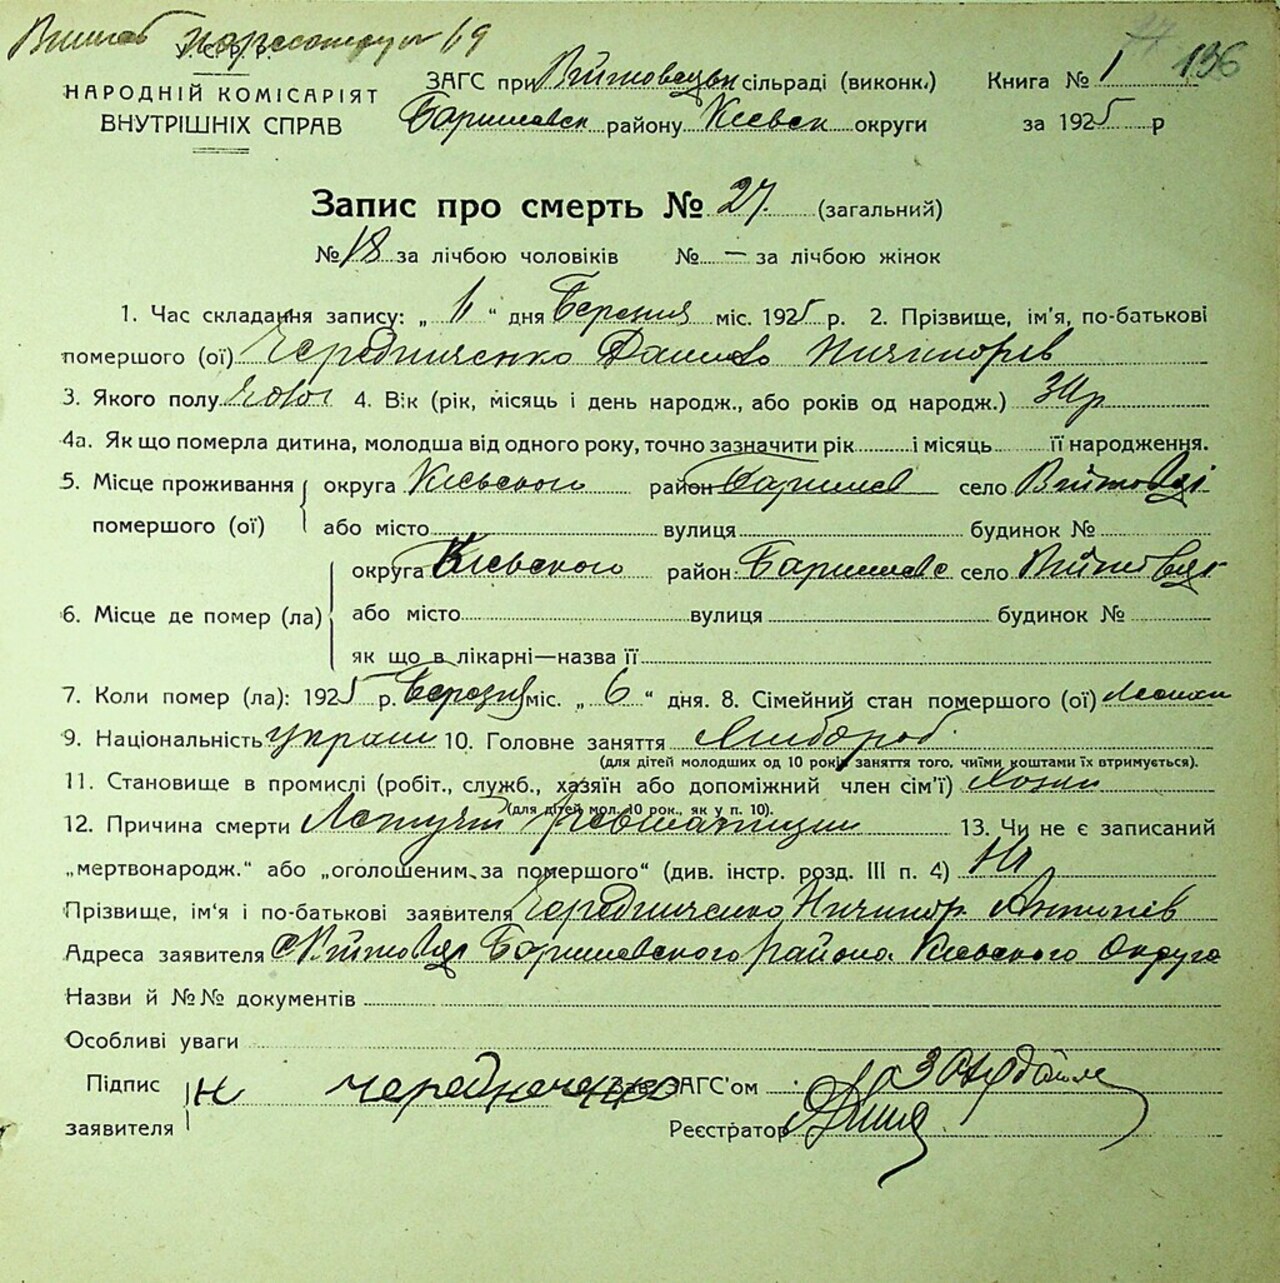 У.С.Р.Р.
НАРОДНІЙ КОМІСАРІЯТ
ВНУТРІШНІХ СПРАВ
ЗАГС при Війтовецьк сільраді (виконк.)
Баришевск району Києвск округи
Книга № 1
136
за 1925 р
Запис про смерть № 27. (загальний)
№ 18 за лічбою чоловіків № — за лічбою жінок
1. Час складання запису: „ 11 “ дня Березня міс. 1925 р. 2. Прізвище, ім'я, по-батькові
помершого (ої) Чередниченко Данило Ничипорів
3. Якого полу 4. Вік (рік, місяць і день народж., або років од народж.)
4а. Як що померла дитина, молодша від одного року, точно зазначити рік і місяць її народження.
5. Місце проживання помершого (ої) округа Києвского район Баришев село Війтовці
або місто вулиця будинок №
6. Місце де помер (ла) округа Києвского район Баришевс село Війтовці
або місто вулиця будинок №
як що в лікарні—назва її
7. Коли помер (ла): 1925 р. Березня міс. „ 6 “ дня. 8. Сімейний стан помершого (ої)
9. Національність україн 10. Головне заняття Хлібороб
(для дітей молодших од 10 років заняття того, чиїми коштами їх втримується).
11. Становище в промислі (робіт., служб., хазяїн або допоміжний член сім'ї) Хозяін
(для дітей мол. 10 рок., як у п. 10).
12. Причина смерти Летучій Ревматизм 13. Чи не є записаний
„мертвонародж.“ або „оголошеним за помершого“ (див. інстр. розд. III п. 4) Ні
Прізвище, ім'я і по-батькові заявителя Чередниченко Ничипор Антонів
Адреса заявителя с Війтовці Баришевского района Києвского Округа
Назви й №№ документів
Особливі уваги
Підпис заявителя Н чередниченко
Зав. ЗАГС'ом
Реєстратор